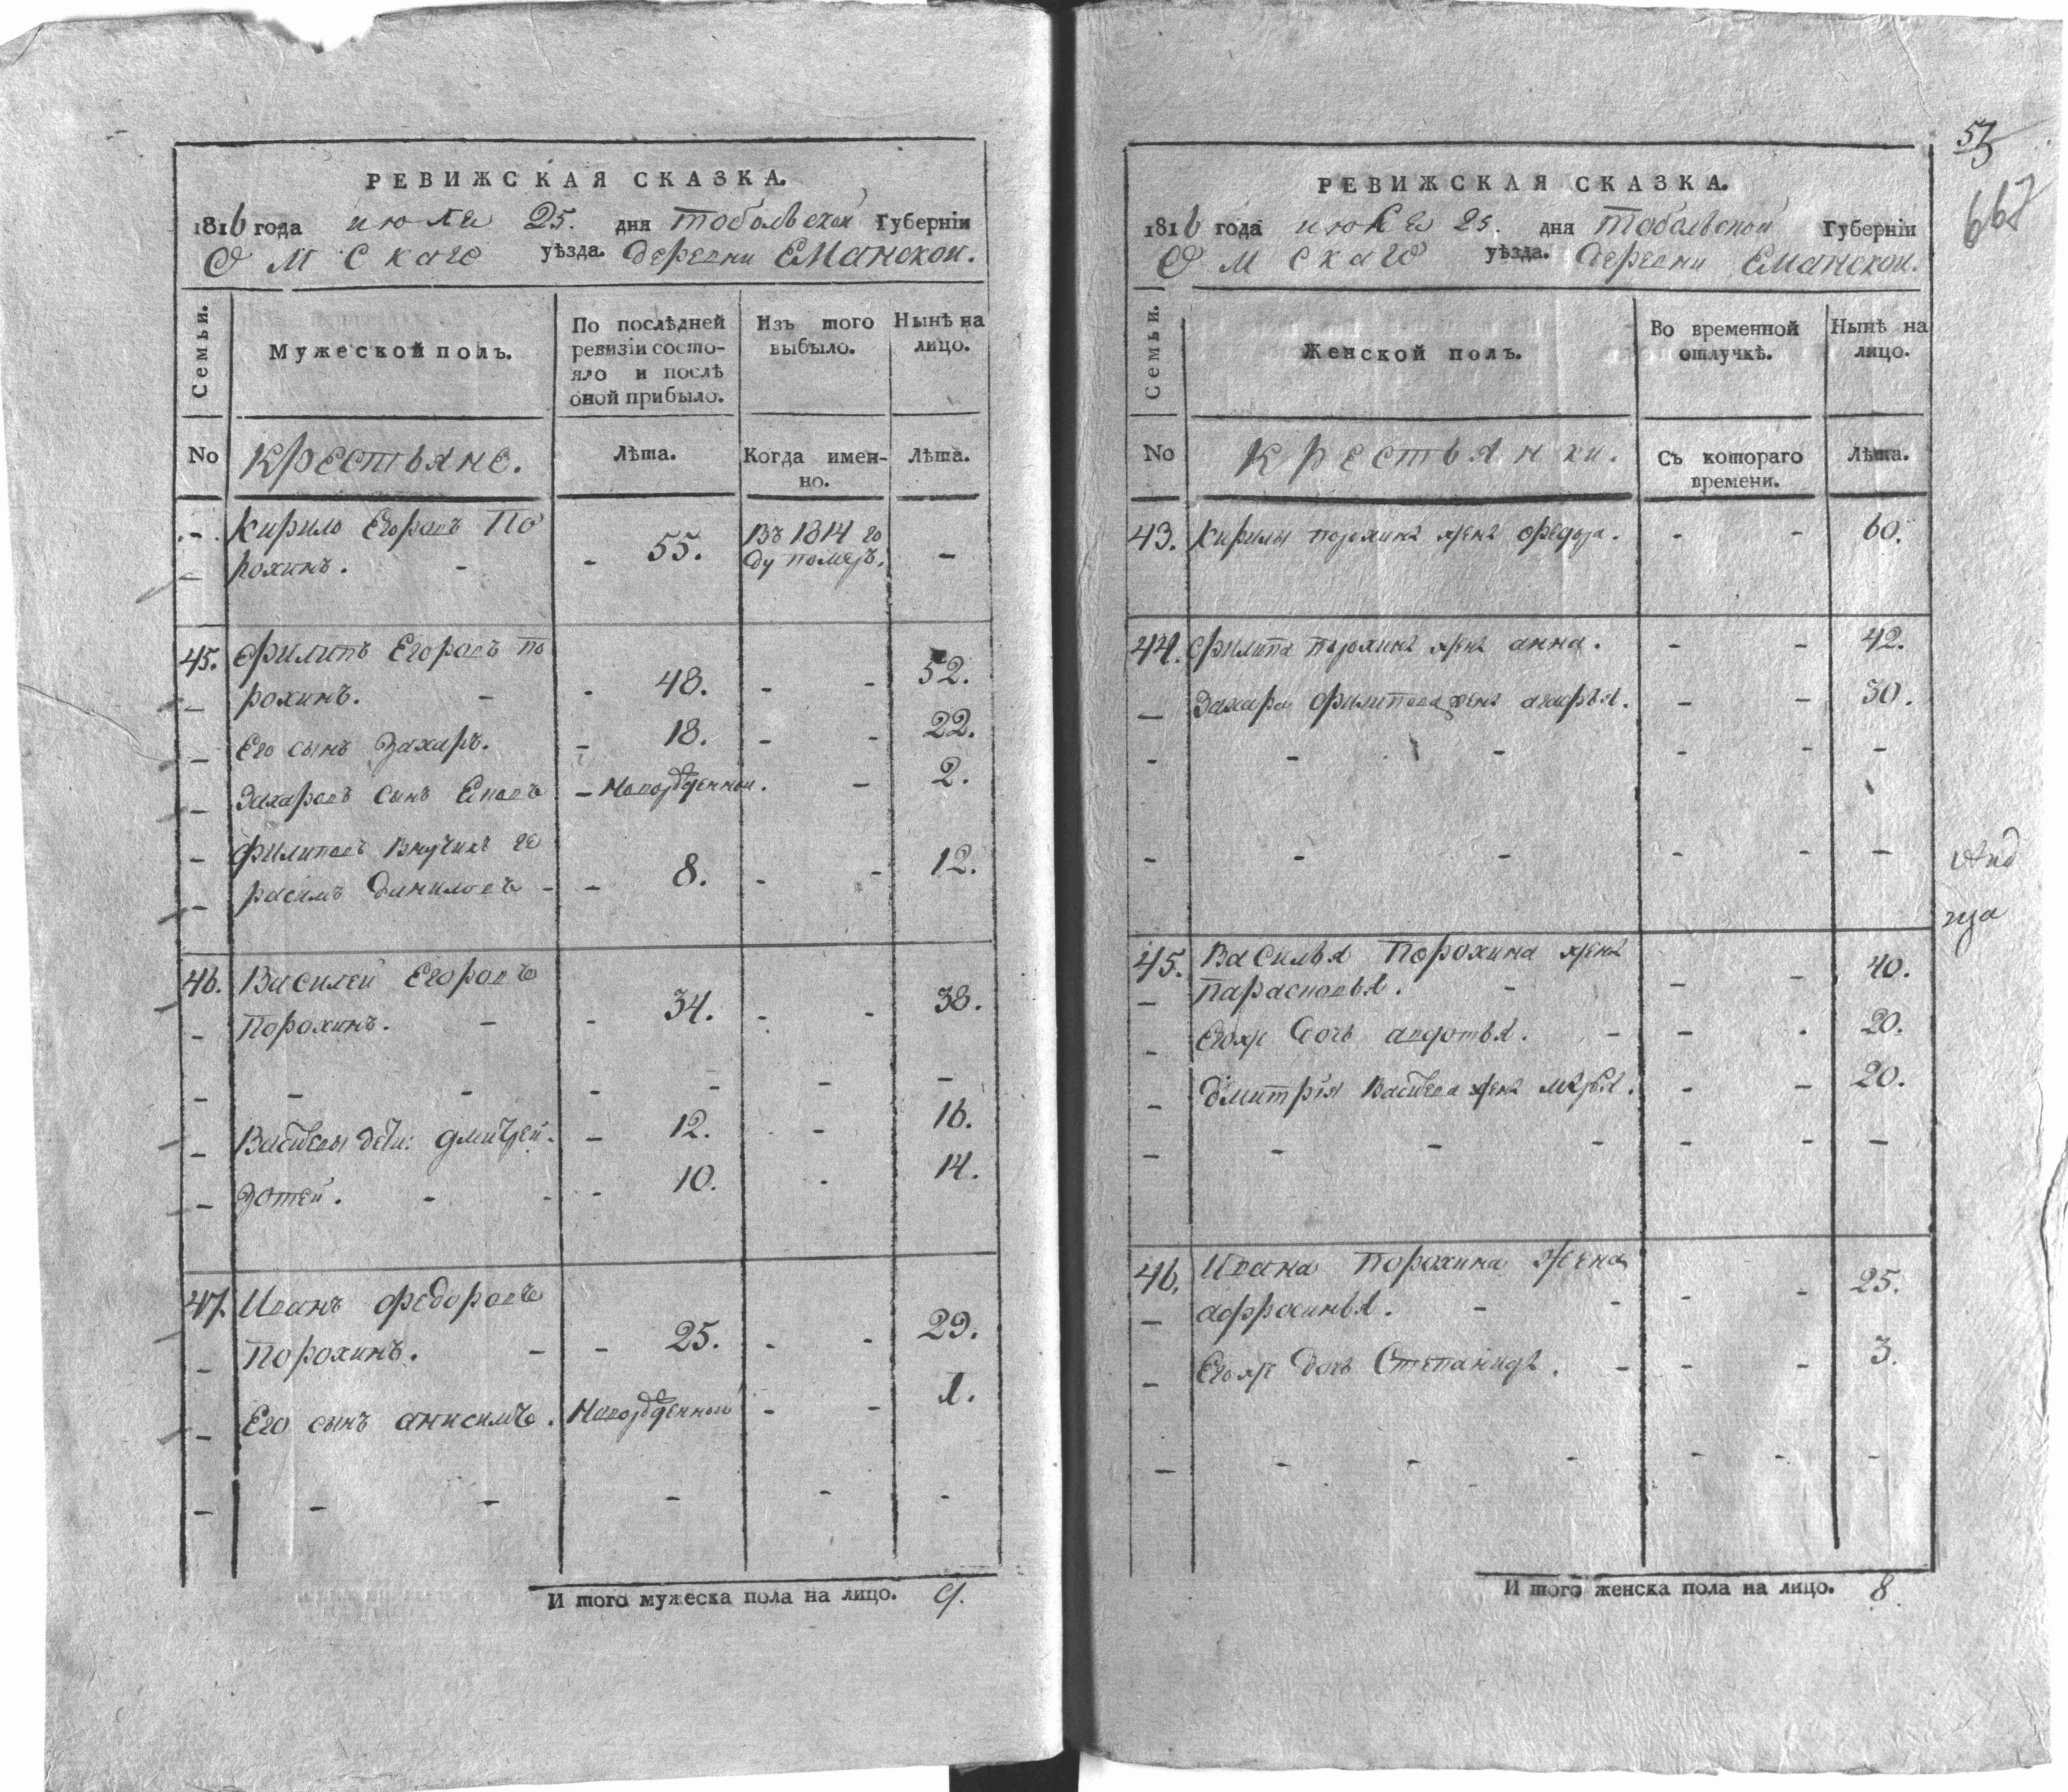 РЕВИЖСКАЯ СКАЗКА.
1816 года июля 25. дня Тобольской Губерніи
Омскаго уѣзда. деревни Еманской.
Семьи.
Мужеской полъ.
По послѣдней ревизіи состо-
яло и послѣ
оной прибыло.
Изъ того
выбыло.
Нынѣ на
лицо.
No
Крестьяне.
Лѣта.
Когда имен-
но.
Лѣта.
Кирило Егоровъ По
рохинъ. - - 55. Въ 1814 го
ду померъ. -
45. Филипъ Егоровъ По
рохинъ. - - 48. - - 52.
Его сынъ Захаръ. - 18. - - 22.
Захаровъ сынъ - Новорожденной. - 2.
Филиповъ внучикъ Ге
расимъ Даниловъ - - 8. - - 12.
46. Василей Егоровъ
Порохинъ. - - 34. - - 38.
- - - - - -
Васильевы дети: Дмитрей. - 12. - 16.
Зотей. - - - 10. - 14.
47. Иванъ Федоровъ
Порохинъ. - - 25. - - 29.
Его сынъ анисимъ. Новорожденной - - 1.
- - - - -
И того мужеска пола на лицо. 9.
57
667
РЕВИЖСКАЯ СКАЗКА.
1816 года июля 25. дня Тобольской Губерніи
Омскаго уѣзда. деревни Еманской.
Семьи.
Женской полъ.
Во временной
отлучкѣ.
Нынѣ на
лицо.
No
Крестьянки.
Съ котораго
времени.
Лѣта.
43. Кирилы Порохина жена Федора. - - 60.
44. Филипа Порохина жена анна. - - 42.
Захара Филипова жена агафья. - - 30.
- - - - - -
- - - - - -
45. Василья Порохина жена
Парасковья. - - - 40.
Егожъ дочь авдотья. - - - 20.
Дмитрія Васильева жена марья. - - 20.
- - - - - - -
46. Ивана Порохина жена
афросинья. - - - - 25.
Егожъ дочь Степанида. - - - 3.
- - - - - - -
И того женска пола на лицо. 8.